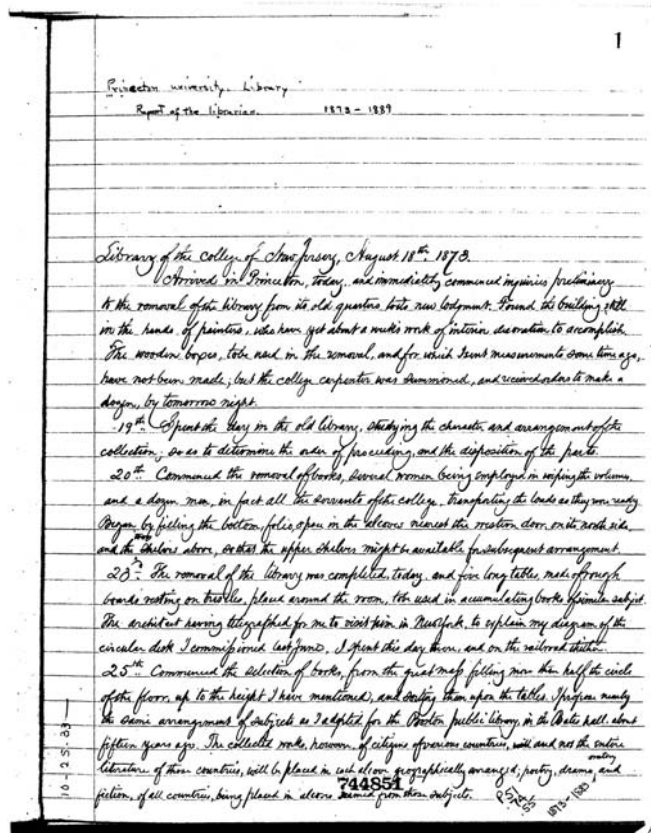 1
Princeton University. Library
Report of the librarian. 1873-1889
Library of the college of New Jersey, August 18th. 1873.
Arrived in Princeton, today, and immediately commenced inquiries preliminary
to the removal of the library from its old quarters to its new lodgment. Found the building still
in the hands of painters, who have yet about a week's work of interior decoration to accomplish.
The wooden boxes, to be used in the removal, and for which I sent measurements some time ago,
have not been made; but the college carpenter was summoned, and received orders to make a
dozen, by tomorrow night.
19th. Spent the day in the old library, studying the character and arrangement of the
collection; so as to determine the order of proceeding, and the disposition of the parts.
20th Commenced the removal of books, several women being employed in wiping the volumes,
and a dozen men, in fact all the servants of the college, transporting the loads as they were ready.
Began by filling the bottom, folio, open in the alcoves nearest the western door, on its north side,
and the shelves above, so that the upper shelves might be available for subsequent arrangement.
23 The removal of the library was completed, today, and five long tables, made of rough
boards resting on trestles, placed around the room, to be used in accumulating books of similar subject.
The architect having telegraphed for me to visit him in New York, to explain my diagram of the
circular desk I commissioned last June, I spent this day there, and on the railroad thither.
25th Commenced the selection of books, from the great mass filling more than half the circle
of the floor, up to the height I have mentioned, and sorting them upon the tables. I propose nearly
the same arrangement of subjects as I adopted for the Boston public library, in the Bates hall, about
fifteen years ago. The collected works, however, of citizens of various countries, will and not the entire
literature of those countries, will be placed in each alcove geographically arranged; poetry, drama, oratory and
fiction, of all countries, being placed in alcoves named from those subjects.
744851
10-25-33
1873-1883